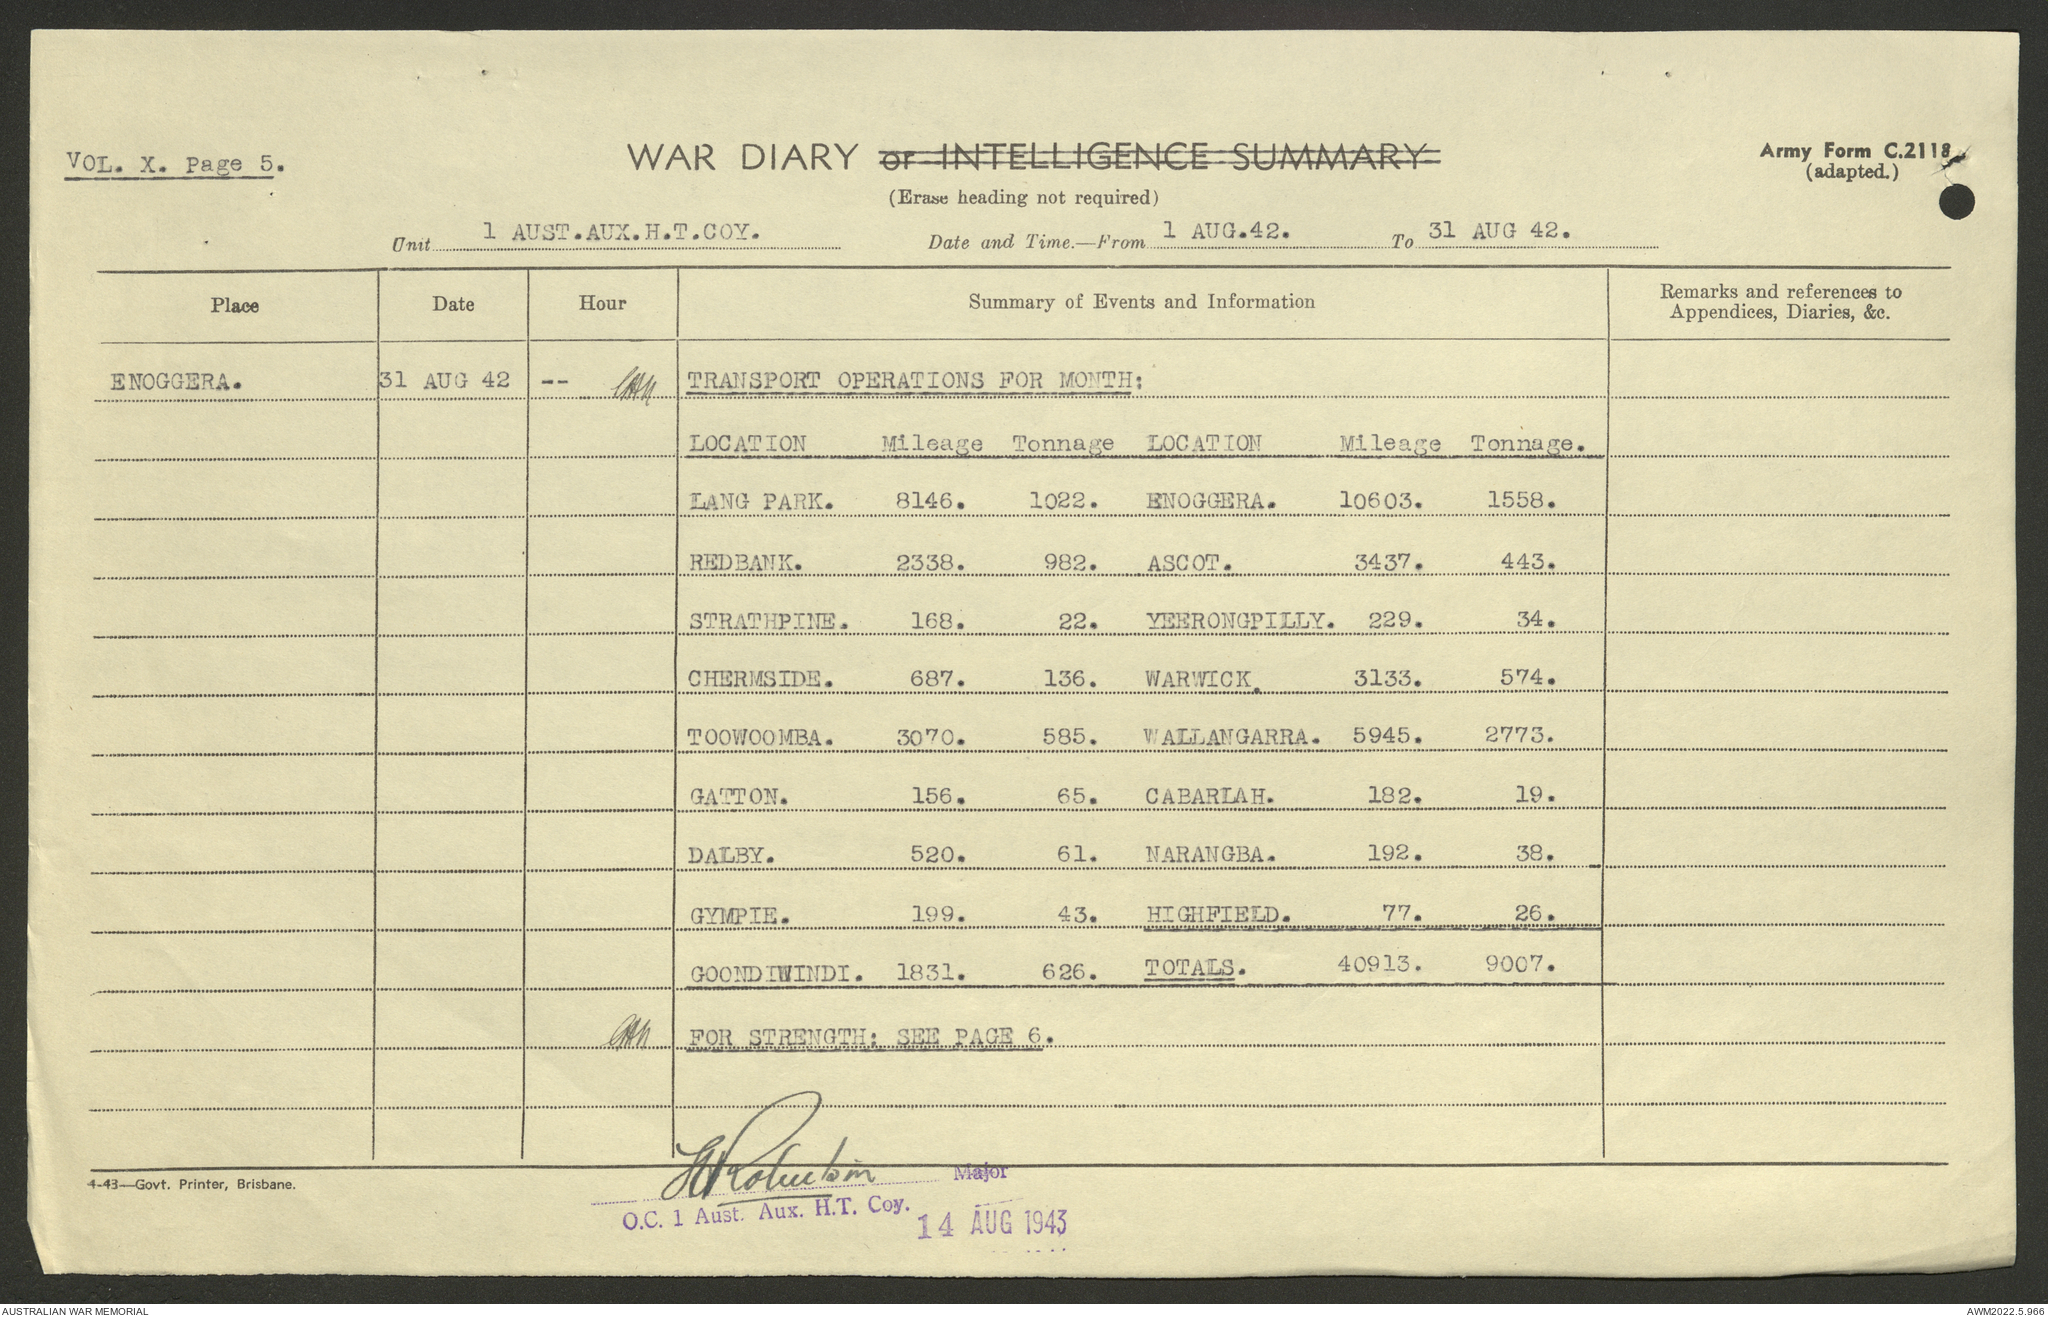 VOL. X. Page 5.
WAR DIARY or INTELLIGENCE SUMMARY
Army Form C.2118
(adapted.)
(Erase heading not required)
Unit 1 AUST.AUX.H.T.COY. Date and Time.—From 1 AUG.42. To 31 AUG 42.
Place Date Hour Summary of Events and Information Remarks and references to
Appendices, Diaries, &c.
ENOGGERA. 31 AUG 42 -- TRANSPORT OPERATIONS FOR MONTH:
LOCATION Mileage Tonnage LOCATION Mileage Tonnage.
LANG PARK. 8146. 1022. ENOGGERA. 10603. 1558.
REDBANK. 2338. 982. ASCOT. 3437. 443.
STRATHPINE. 168. 22. YEERONGPILLY. 229. 34.
CHERMSIDE. 687. 136. WARWICK. 3133. 574.
TOOWOOMBA. 3070. 585. WALLANGARRA. 5945. 2773.
GATTON. 156. 65. CABARLAH. 182. 19.
DALBY. 520. 61. NARANGBA. 192. 38.
GYMPIE. 199. 43. HIGHFIELD. 77. 26.
GOONDIWINDI. 1831. 626. TOTALS. 40913. 9007.
FOR STRENGTH: SEE PAGE 6.
4-43—Govt. Printer, Brisbane.
Major
O.C. 1 Aust. Aux. H.T. Coy.
14 AUG 1943
AUSTRALIAN WAR MEMORIAL
AWM2022.5.966